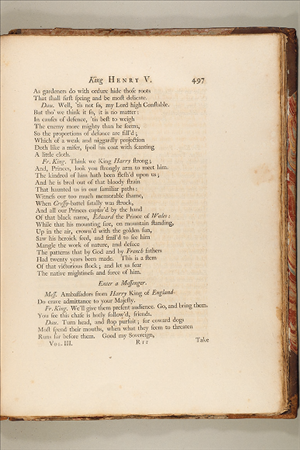 King HENRY V. 497
As gardeners do with ordure hide those roots
That shall first spring and be most delicate.
Dau. Well, 'tis not so, my Lord high Constable.
But tho' we think it so, it is no matter:
In causes of defence, 'tis best to weigh
The enemy more mighty than he seems,
So the proportions of defence are fill'd;
Which of a weak and niggardly projection
Doth like a miser, spoil his coat with scanting
A little cloth.
Fr. King. Think we King Harry strong;
And, Princes, look you strongly arm to meet him.
The kindred of him hath been flesh'd upon us;
And he is bred out of that bloody strain
That haunted us in our familiar paths:
Witness our too much memorable shame,
When Cressy-battel fatally was struck,
And all our Princes captiv'd by the hand
Of that black name, Edward the Prince of Wales:
While that his mounting sire, on mountain standing,
Up in the air, crown'd with the golden sun,
Saw his heroick seed, and smil'd to see him
Mangle the work of nature, and deface
The patterns that by God and by French fathers
Had twenty years been made. This is a stem
Of that victorious stock; and let us fear
The native mightiness and force of him.
Enter a Messenger.
Mess. Ambassadors from Harry King of England
Do crave admittance to your Majesty.
Fr. King. We'll give them present audience. Go, and bring them.
You see this chase is hotly follow'd, friends.
Dau. Turn head, and stop pursuit; for coward dogs
Most spend their mouths, when what they seem to threaten
Runs far before them. Good my Sovereign,
VOL. III. Rrr Take